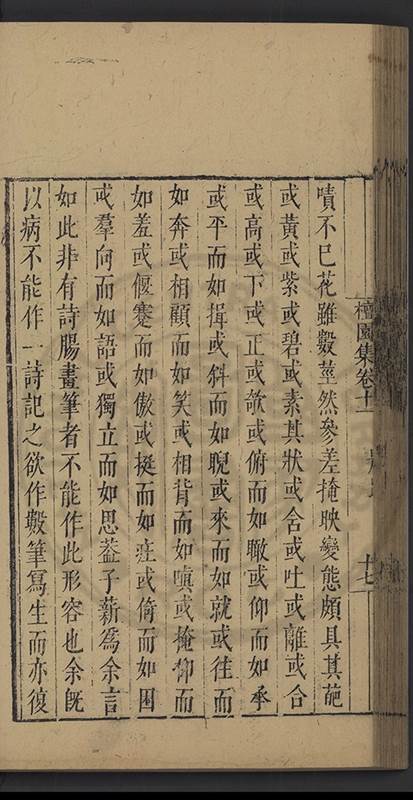 嘖不已花雖數莖然參差掩映變態頗具其葩
或黃或紫或碧或素其狀或含或吐或離或合
或高或下或正或欹或俯而如瞰或仰而如承
或平而如揖或斜而如睨或來而如就或往而
如奔或相顧而如笑或相背而如嗔或掩抑而
如羞或偃蹇而如傲或挺而如莊或倚而如困
或羣向而如語或獨立而如思蓋子薪為余言
如此非有詩腸畫筆者不能作此形容也余既
以病不能作一詩記之欲作數筆寫生而亦復
檀園集卷十一
十七